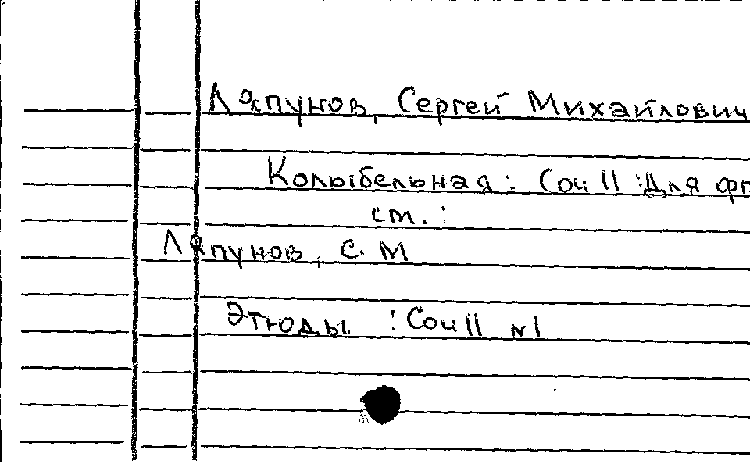 Ляпунов, Сергей Михайлович
Колыбельная : Соч 11 : Для фп
см. :
Ляпунов, С. М
Этюды : Соч 11 №1